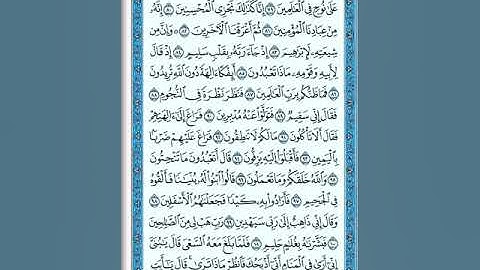 عَلَىٰ نُوحٍ فِي ٱلْعَٰلَمِينَ ۝٧٩ إِنَّا كَذَٰلِكَ نَجْزِي ٱلْمُحْسِنِينَ ۝٨٠ إِنَّهُۥ
مِنْ عِبَادِنَا ٱلْمُؤْمِنِينَ ۝٨١ ثُمَّ أَغْرَقْنَا ٱلْأٓخَرِينَ ۝٨٢ وَإِنَّ مِن
شِيعَتِهِۦ لَإِبْرَٰهِيمَ ۝٨٣ إِذْ جَآءَ رَبَّهُۥ بِقَلْبٍ سَلِيمٍ ۝٨٤ إِذْ قَالَ
لِأَبِيهِ وَقَوْمِهِۦ مَاذَا تَعْبُدُونَ ۝٨٥ أَئِفْكًا ءَالِهَةً دُونَ ٱللَّهِ تُرِيدُونَ
۝٨٦ فَمَا ظَنُّكُم بِرَبِّ ٱلْعَٰلَمِينَ ۝٨٧ فَنَظَرَ نَظْرَةً فِي ٱلنُّجُومِ
۝٨٨ فَقَالَ إِنِّي سَقِيمٌ ۝٨٩ فَتَوَلَّوْا۟ عَنْهُ مُدْبِرِينَ ۝٩٠ فَرَاغَ إِلَىٰٓ ءَالِهَتِهِمْ
فَقَالَ أَلَا تَأْكُلُونَ ۝٩١ مَا لَكُمْ لَا تَنطِقُونَ ۝٩٢ فَرَاغَ عَلَيْهِمْ ضَرْبًۢا
بِٱلْيَمِينِ ۝٩٣ فَأَقْبَلُوٓا۟ إِلَيْهِ يَزِفُّونَ ۝٩٤ قَالَ أَتَعْبُدُونَ مَا تَنْحِتُونَ
۝٩٥ وَٱللَّهُ خَلَقَكُمْ وَمَا تَعْمَلُونَ ۝٩٦ قَالُوا۟ ٱبْنُوا۟ لَهُۥ بُنْيَٰنًا فَأَلْقُوهُ
فِي ٱلْجَحِيمِ ۝٩٧ فَأَرَادُوا۟ بِهِۦ كَيْدًا فَجَعَلْنَٰهُمُ ٱلْأَسْفَلِينَ ۝٩٨
وَقَالَ إِنِّي ذَاهِبٌ إِلَىٰ رَبِّي سَيَهْدِينِ ۝٩٩ رَبِّ هَبْ لِي مِنَ ٱلصَّٰلِحِينَ
۝١٠٠ فَبَشَّرْنَٰهُ بِغُلَٰمٍ حَلِيمٍ ۝١٠١ فَلَمَّا بَلَغَ مَعَهُ ٱلسَّعْيَ قَالَ يَٰبُنَيَّ
إِنِّيٓ أَرَىٰ فِي ٱلْمَنَامِ أَنِّيٓ أَذْبَحُكَ فَٱنظُرْ مَاذَا تَرَىٰ ۚ قَالَ يَٰٓأَبَتِ